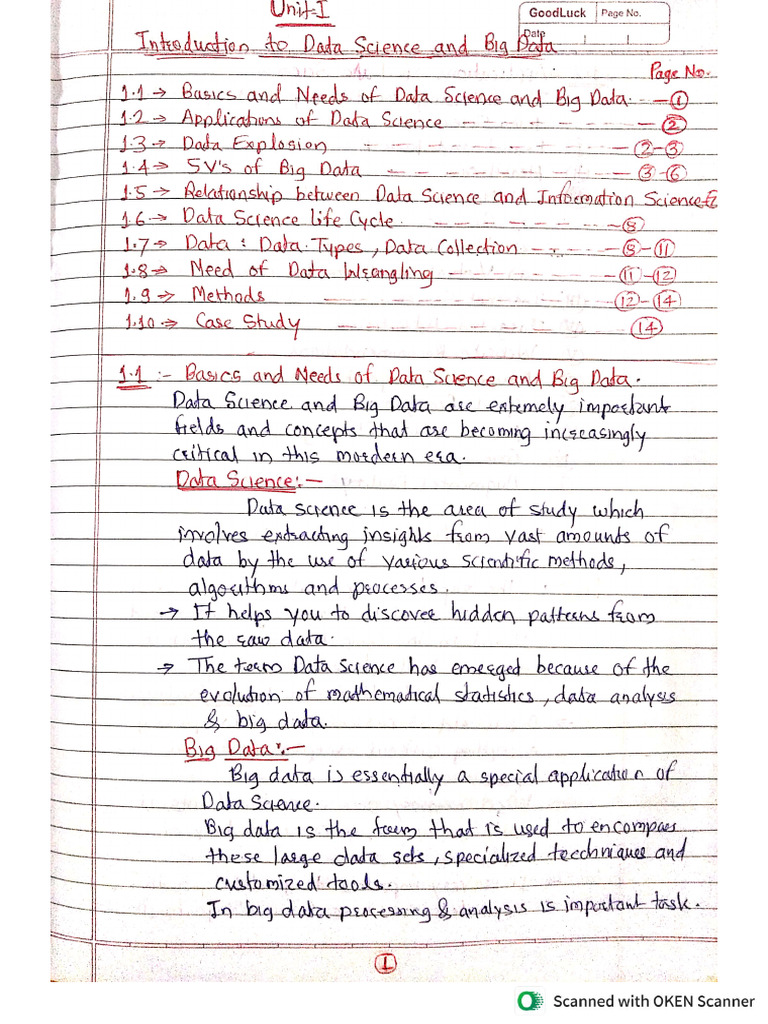 Unit-I
GoodLuck Page No.
Date
Introduction to Data Science and Big Data
Page No.
1.1 → Basics and Needs of Data Science and Big Data. - ①
1.2 → Applications of Data Science - - - - - - - ②
1.3 → Data Explosion - - - - - - - ②-③
1.4 → 5V's of Big Data - - - - - - - ③-⑥
1.5 → Relationship between Data Science and Information Science-
1.6 → Data Science life Cycle - - - - - - - ⑧
1.7 → Data : Data Types, Data Collection - - - - ⑧-⑪
1.8 → Need of Data Wrangling - - - - - ⑪-⑫
1.9 → Methods - - - - - - - ⑫-⑭
1.10 → Case Study - - - - - - - ⑭
1.1 :- Basics and Needs of Data Science and Big Data.
Data Science and Big Data are extemely important
fields and concepts that are becoming increasingly
critical in this mordern era.
Data Science:-
Data science is the area of study which
involves extracting insights from vast amounts of
data by the use of various scientific methods,
algorithms and processes.
→ It helps you to discover hidden patterns from
the raw data.
→ The term Data Science has emerged because of the
evolution of mathematical statistics, data analysis
& big data.
Big Data:-
Big data is essentially a special application of
Data Science.
Big data is the term that is used to encompass
these large data sets, specialized tecchniques and
customized tools.
In big data processing & analysis is important task.
①
Scanned with OKEN Scanner